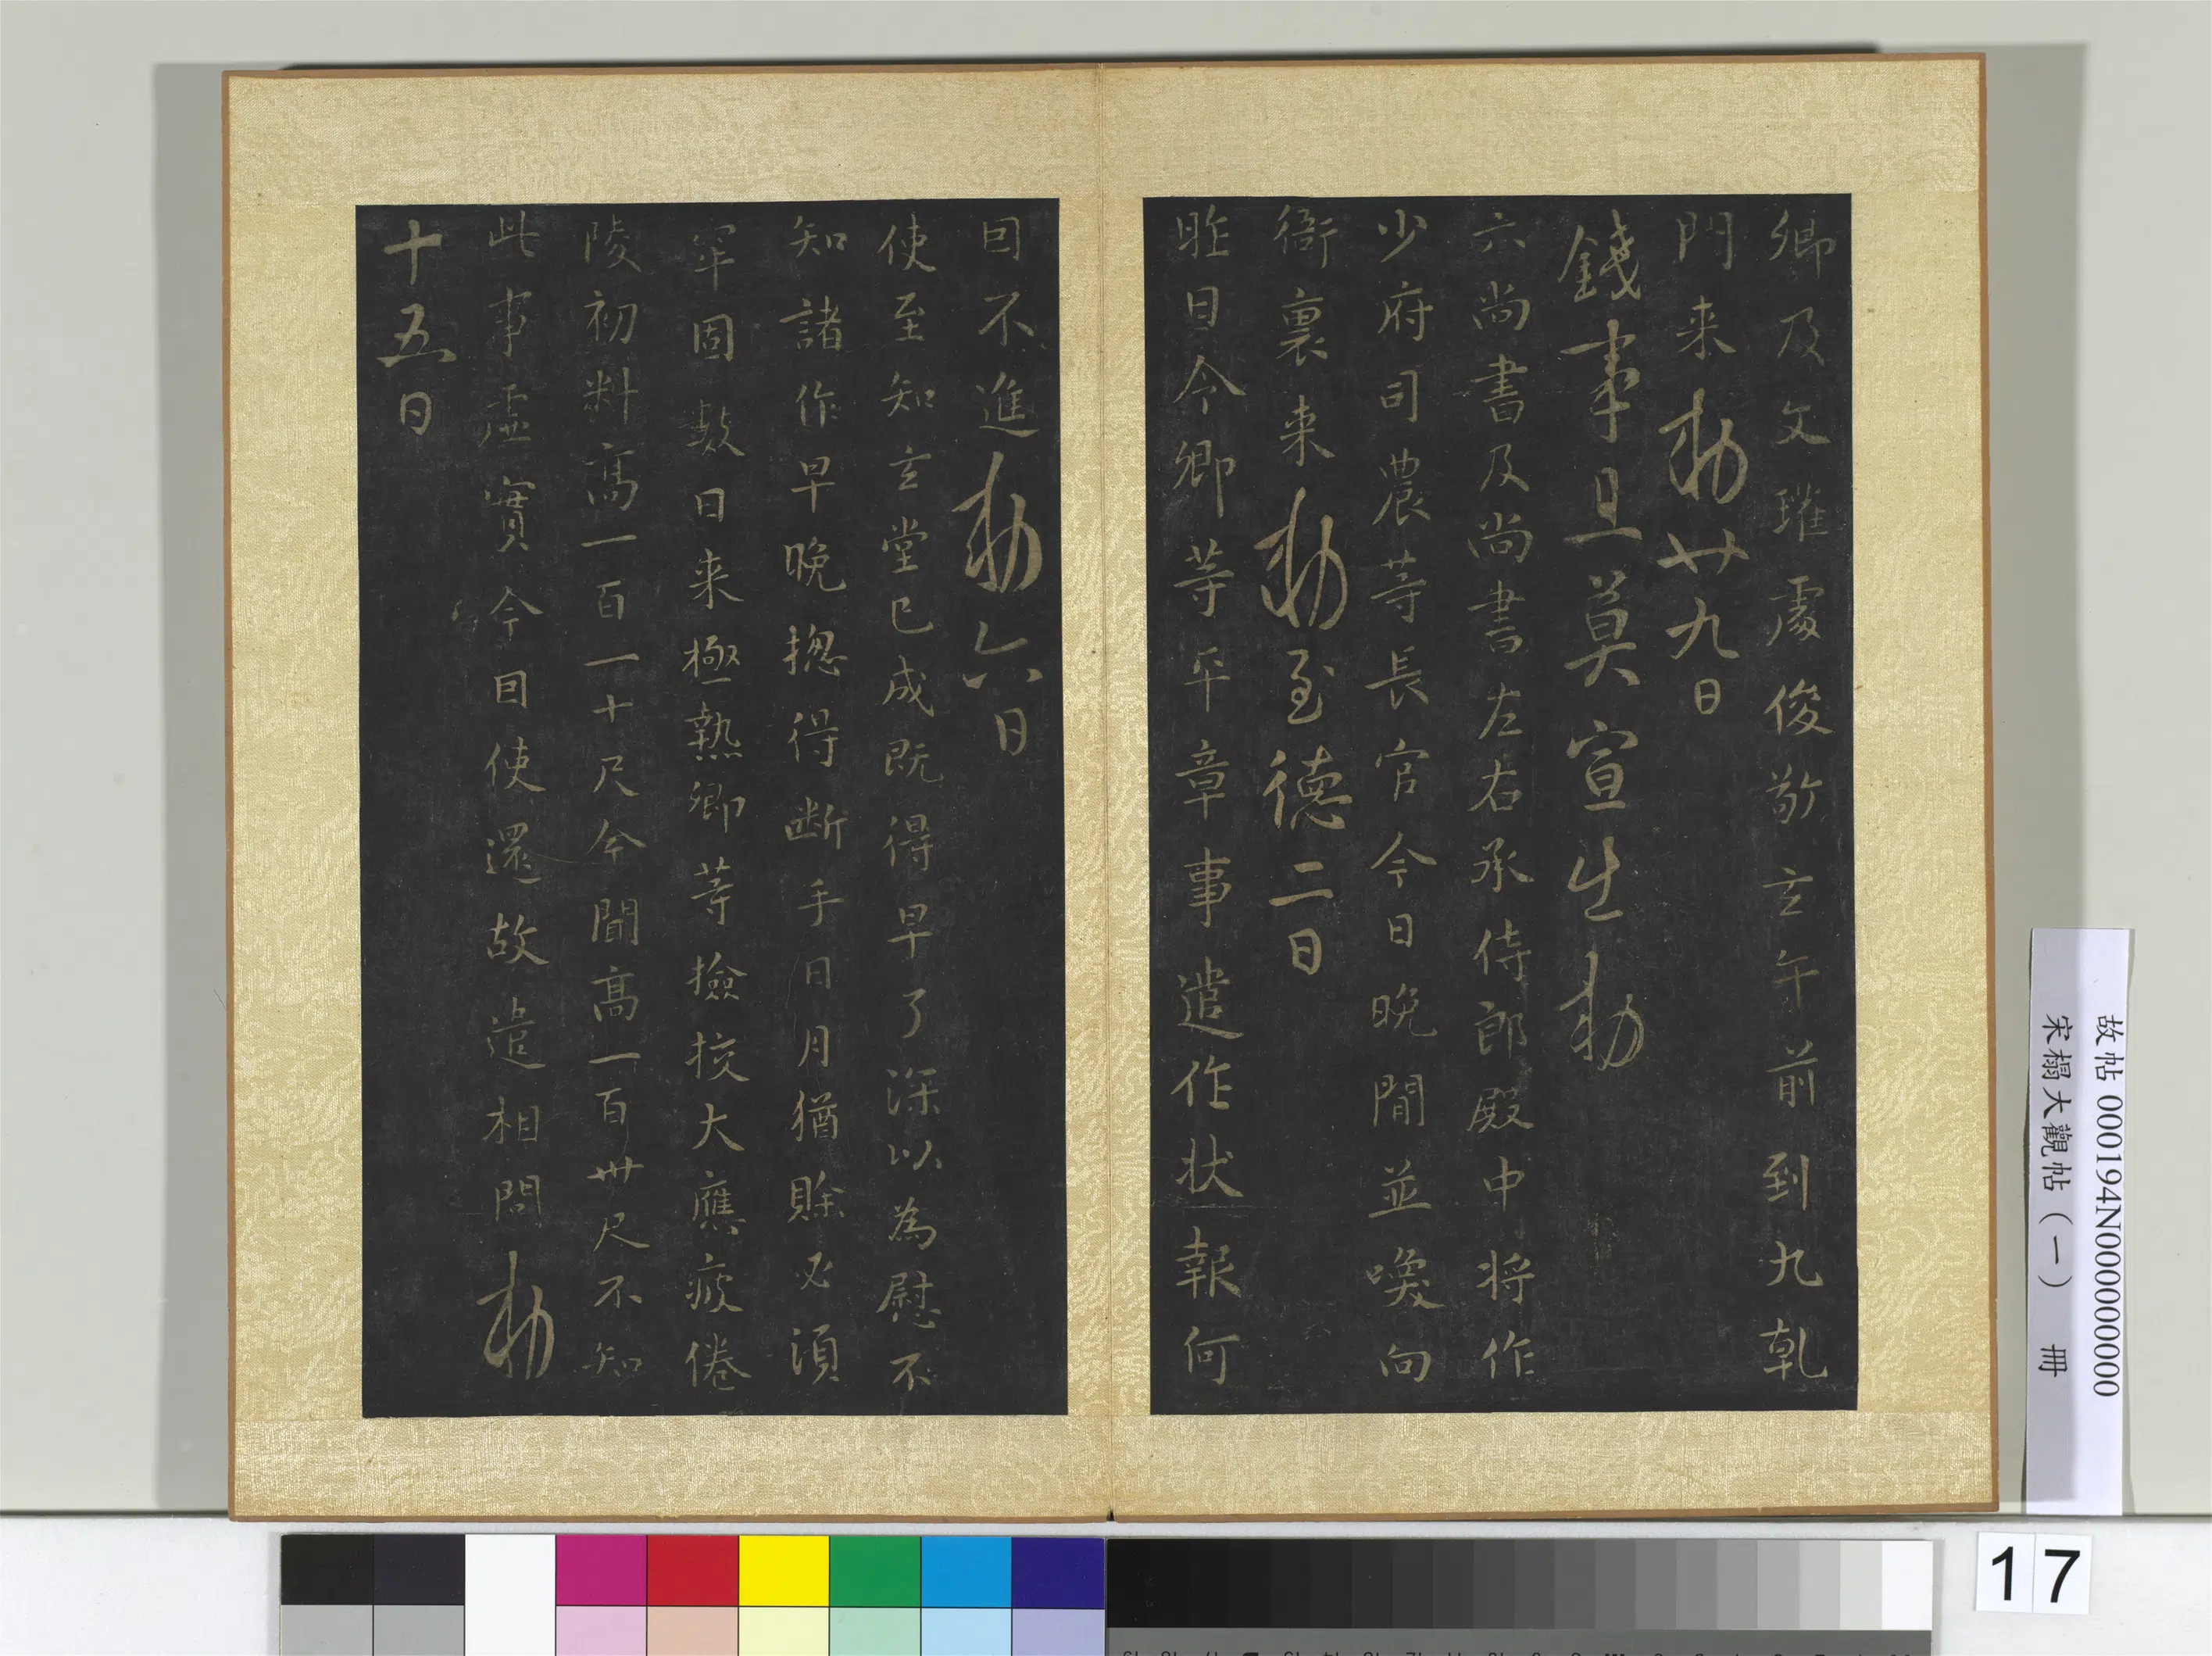 卿及文瓘處俊敬玄午前到九乹
門来勅廿九日
錢事且莫宣出勅
六尚書及尚書左右承侍郎殿中將作
少府司農等長官今日晚閒並喚向
衙裏来勅至德二日
昨日令卿等平章事遣作狀報何
因不進勅六日
使至知玄堂已成既得早了深以為慰不
知諸作早晚揔得断手日月猶賒必湏
牢固數日来極熱卿等撿挍大應疲倦
陵初料高一百一十尺今聞高一百卅尺不知
此事虛實今因使還故遣相問勅
十五日
故帖 000194N000000000
宋榻大觀帖（一） 冊
17